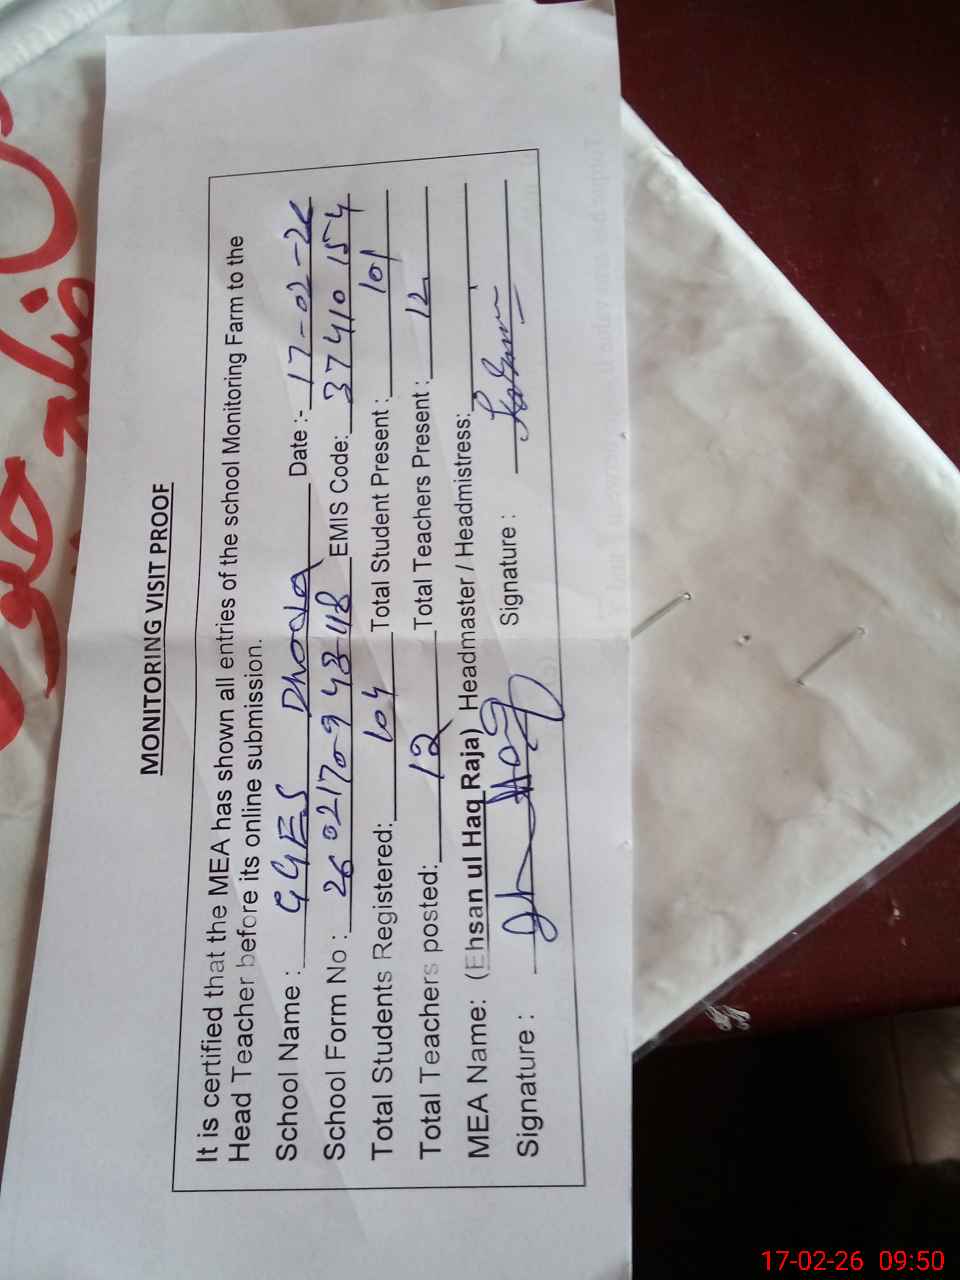 MONITORING VISIT PROOF
It is certified that the MEA has shown all entries of the school Monitoring Farm to the
Head Teacher before its online submission.
School Name : GGES Dhoda Date :- 17-02-26
School Form No : 26021709 48 48 EMIS Code: 37410 154
Total Students Registered: 104 Total Student Present : 101
Total Teachers posted: 12 Total Teachers Present : 12
MEA Name: (Ehsan ul Haq Raja) Headmaster / Headmistress:
Signature : Signature :
17-02-26 09:50